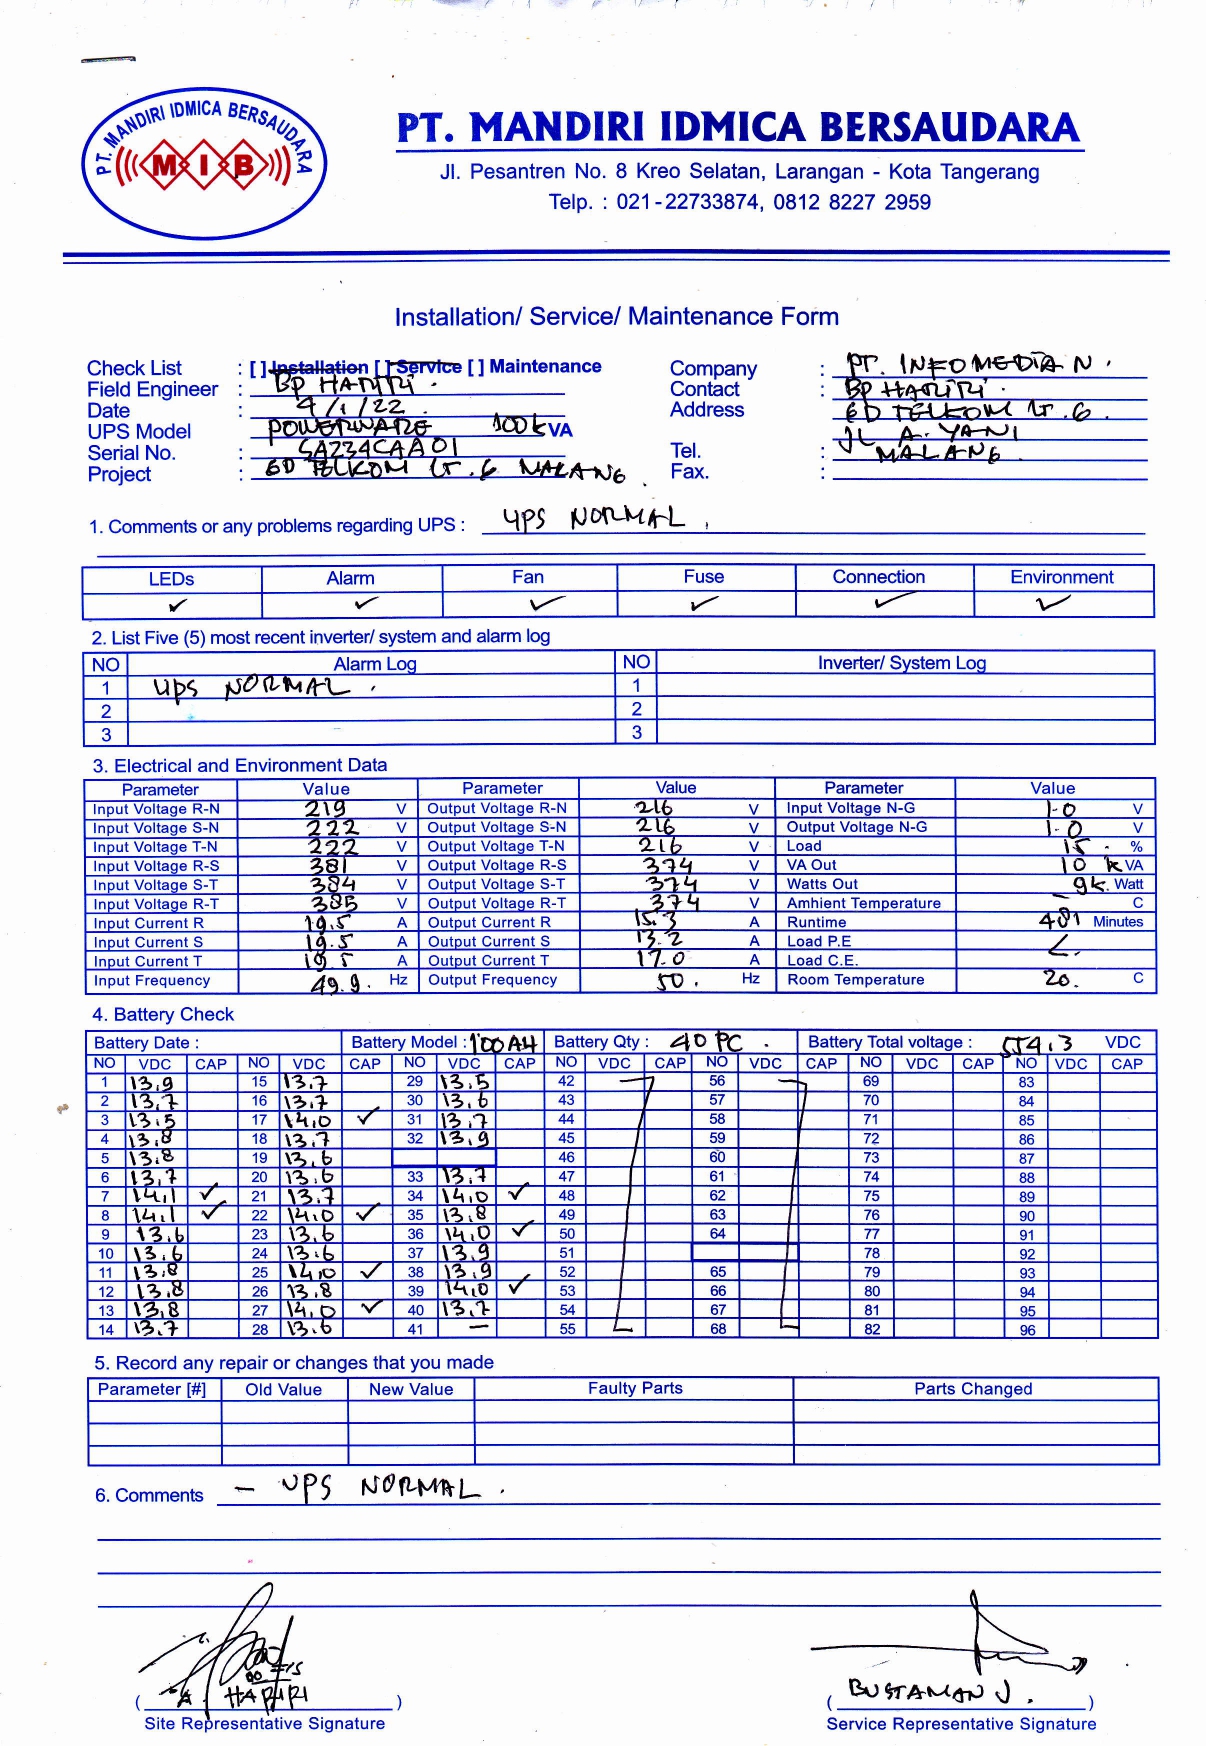 PT. MANDIRI IDMICA BERSAUDARA
MIB
PT. MANDIRI IDMICA BERSAUDARA
Jl. Pesantren No. 8 Kreo Selatan, Larangan - Kota Tangerang
Telp. : 021-22733874, 0812 8227 2959
Installation/ Service/ Maintenance Form
Check List : [ ] Installation [ ] Service [ ] Maintenance
Field Engineer : BP HARIRI.
Date : 4/1/22.
UPS Model : POWERWARE 100 kVA
Serial No. : SA234CAA01
Project : GD TELKOM LT.6 MALANG.
Company : PT. INFOMEDIA N.
Contact : BP HARIRI.
Address : GD TELKOM LT.6.
JL A. YANI
Tel. : MALANG.
Fax. :
1. Comments or any problems regarding UPS : UPS NORMAL.
LEDs Alarm Fan Fuse Connection Environment
✓ ✓ ✓ ✓ ✓ ✓
2. List Five (5) most recent inverter/ system and alarm log
NO Alarm Log NO Inverter/ System Log
1 UPS NORMAL. 1
2 2
3 3
3. Electrical and Environment Data
Parameter Value Parameter Value Parameter Value
Input Voltage R-N 219 V Output Voltage R-N 216 V Input Voltage N-G 1.0 V
Input Voltage S-N 222 V Output Voltage S-N 216 V Output Voltage N-G 1.0 V
Input Voltage T-N 222 V Output Voltage T-N 216 V Load 15. %
Input Voltage R-S 381 V Output Voltage R-S 374 V VA Out 10 kVA
Input Voltage S-T 384 V Output Voltage S-T 374 V Watts Out 9k. Watt
Input Voltage R-T 385 V Output Voltage R-T 374 V Amhient Temperature – C
Input Current R 19.5 A Output Current R 15.3 A Runtime 481 Minutes
Input Current S 19.5 A Output Current S 13.2 A Load P.E
Input Current T 19.5 A Output Current T 17.0 A Load C.E.
Input Frequency 49.9. Hz Output Frequency 50. Hz Room Temperature 20. C
4. Battery Check
Battery Date : Battery Model : 100AH Battery Qty : 40 PC. Battery Total voltage : 554.3 VDC
NO VDC CAP NO VDC CAP NO VDC CAP NO VDC CAP NO VDC CAP NO VDC CAP NO VDC CAP
1 13.9 15 13.7 29 13.5 42 56 69 83
2 13.7 16 13.7 30 13.6 43 57 70 84
3 13.5 17 14.0 ✓ 31 13.7 44 58 71 85
4 13.8 18 13.7 32 13.9 45 59 72 86
5 13.8 19 13.6 46 60 73 87
6 13.7 20 13.6 33 13.7 47 61 74 88
7 14.1 ✓ 21 13.7 34 14.0 ✓ 48 62 75 89
8 14.1 ✓ 22 14.0 ✓ 35 13.8 49 63 76 90
9 13.6 23 13.6 36 14.0 ✓ 50 64 77 91
10 13.6 24 13.6 37 13.9 51 78 92
11 13.8 25 14.0 ✓ 38 13.9 52 65 79 93
12 13.8 26 13.8 39 14.0 ✓ 53 66 80 94
13 13.8 27 14.0 ✓ 40 13.7 54 67 81 95
14 13.7 28 13.6 41 – 55 68 82 96
5. Record any repair or changes that you made
Parameter [#] Old Value New Value Faulty Parts Parts Changed
6. Comments – UPS NORMAL.
( A. HARIRI ) ( BUSTAMAN J. )
Site Representative Signature Service Representative Signature